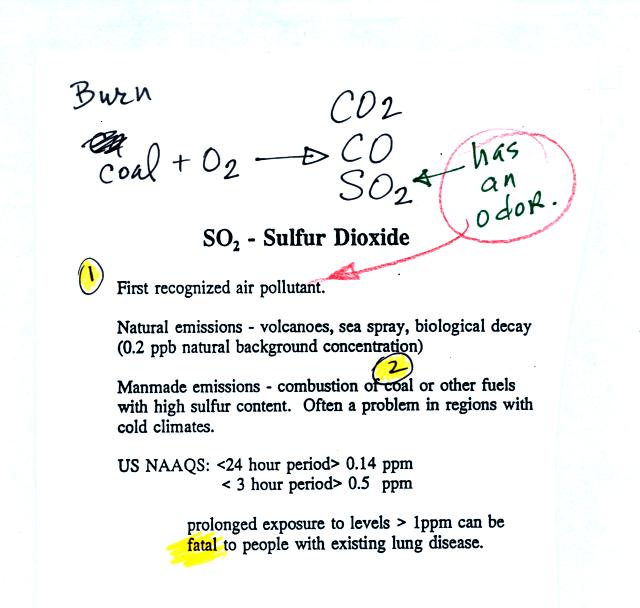 Burn
CO2
coal + O2 → CO
SO2 ← has
an
odor.
SO₂ - Sulfur Dioxide
1
First recognized air pollutant.
Natural emissions - volcanoes, sea spray, biological decay
(0.2 ppb natural background concentration)
2
Manmade emissions - combustion of coal or other fuels
with high sulfur content. Often a problem in regions with
cold climates.
US NAAQS: <24 hour period> 0.14 ppm
< 3 hour period> 0.5 ppm
prolonged exposure to levels > 1ppm can be
fatal to people with existing lung disease.